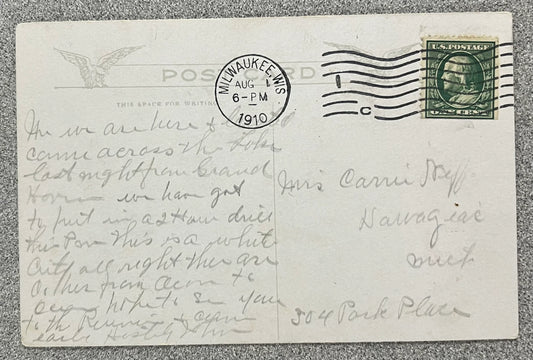 POST CARD
THIS SPACE FOR WRITING
MILWAUKEE, WIS.
AUG 1
6-PM
1910
C
U.S. POSTAGE
we are here &
came across the Lake
last night from Grand
Haven we have got
to put in a 2 Hour drill
this P.m. This is a white
City all right ther are
from to
hope to See you
to th Reunion
early John
Mrs Carrie Neff
Dowagiac
Mich
304 Park Place